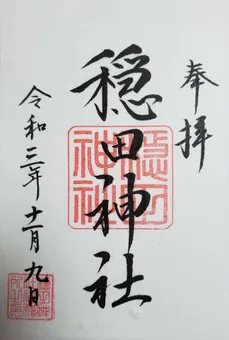 奉拝
穏田神社
穏田
神社
令和三年十一月九日